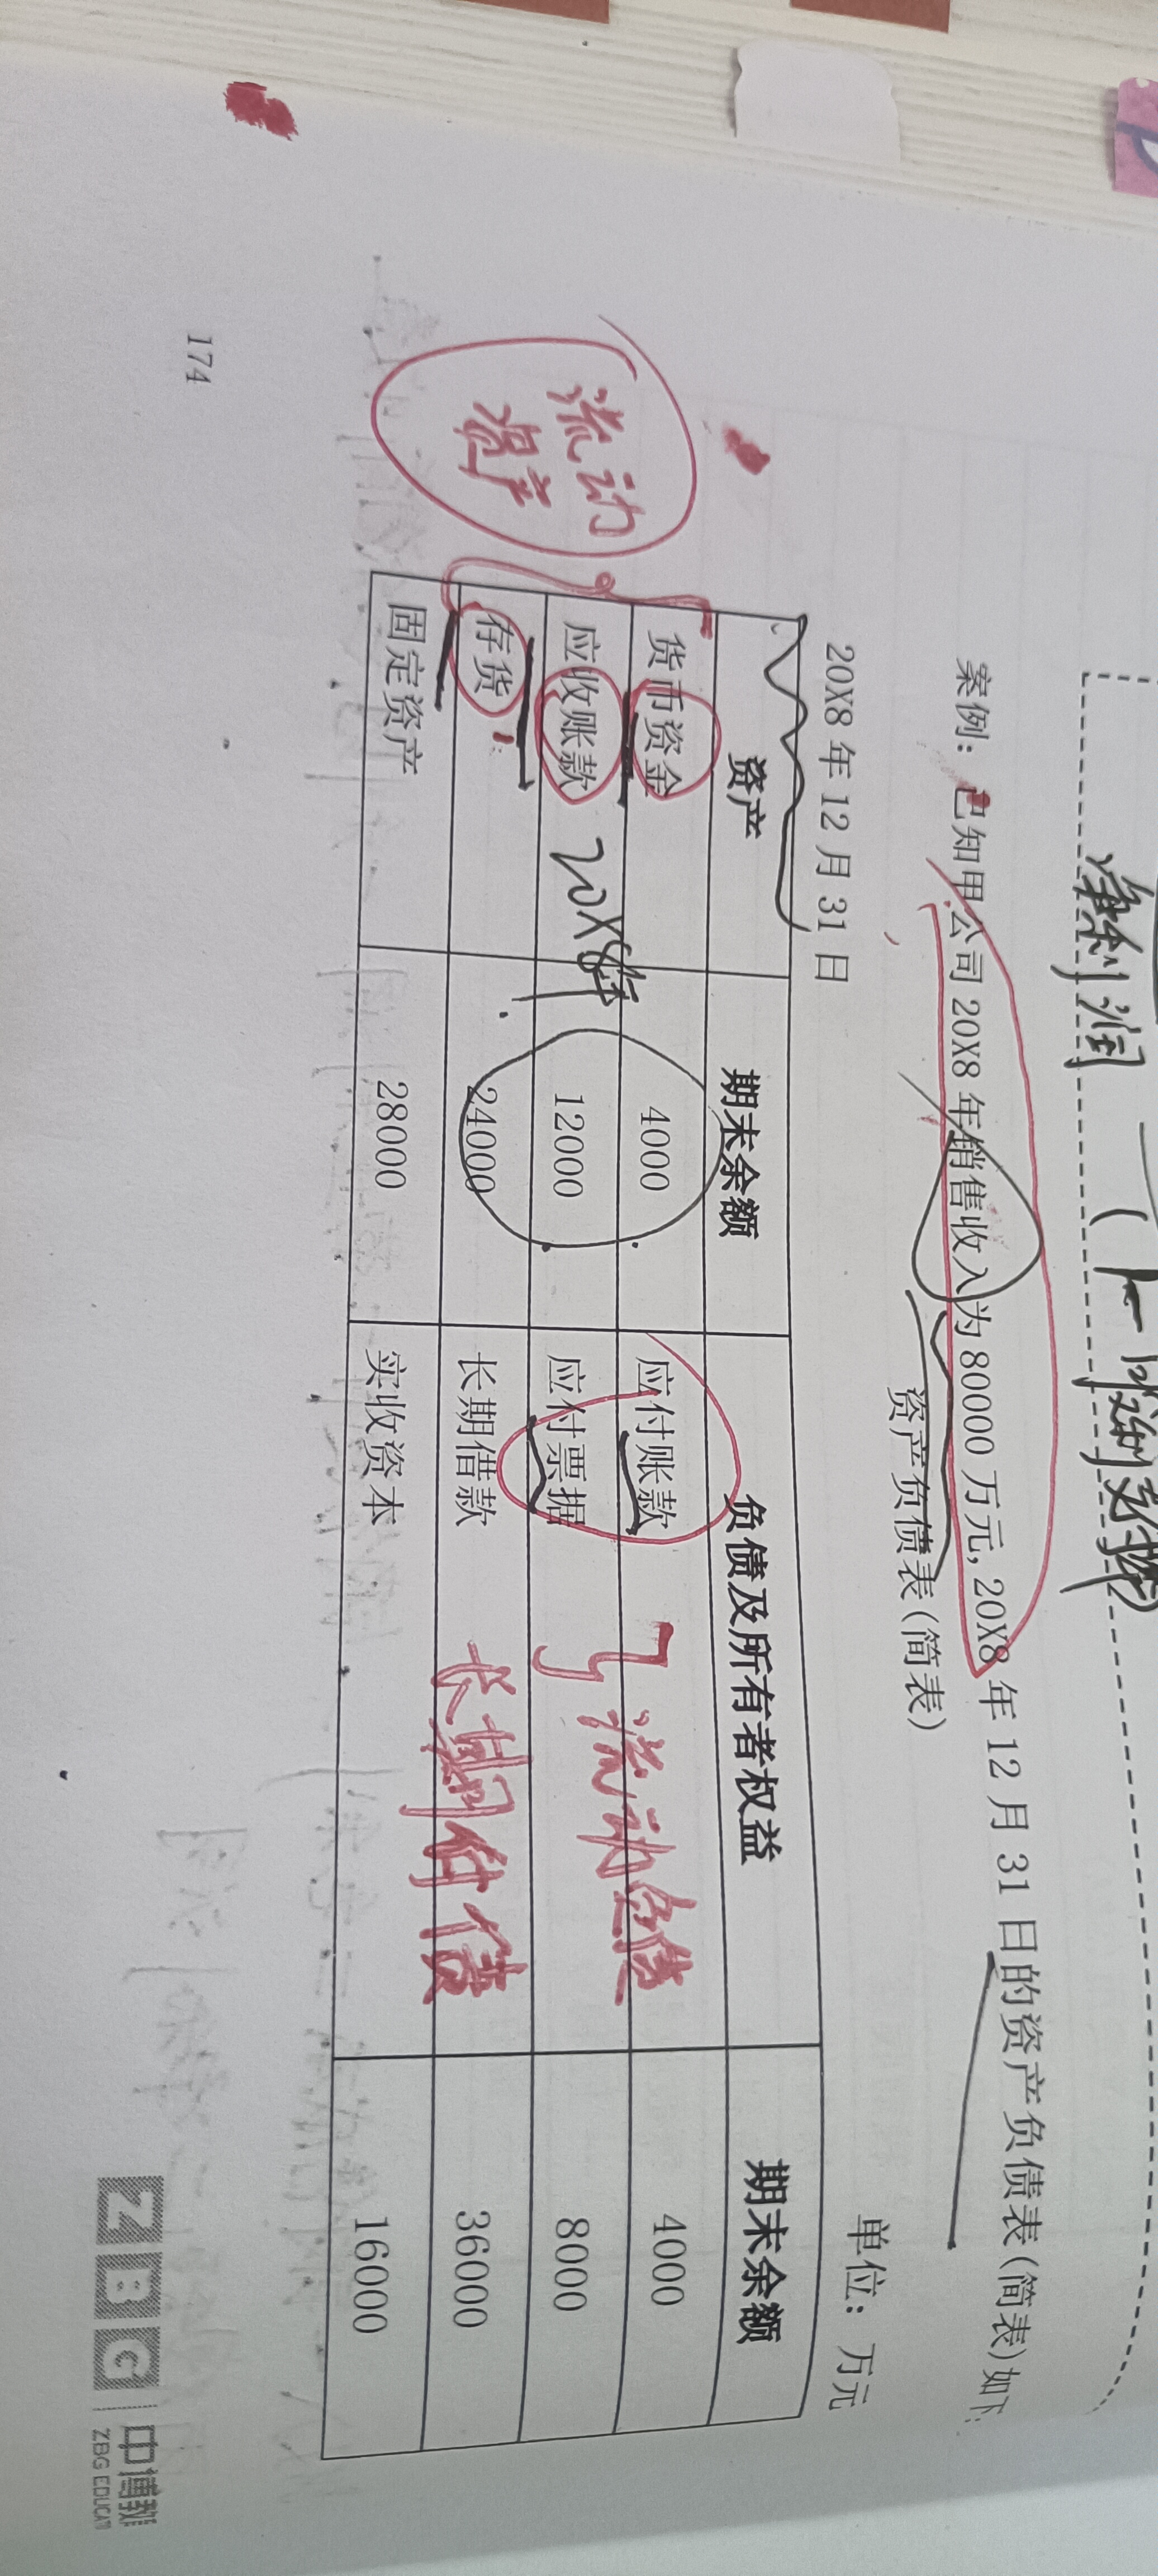 净利润
案例：已知甲公司20X8年销售收入为80000万元，20X8年12月31日的资产负债表(简表)如下：
资产负债表(简表)
20X8年12月31日 单位：万元
资产 期末余额 负债及所有者权益 期末余额
货币资金 4000 应付账款 4000
应收账款 12000 应付票据 8000
存货 24000 长期借款 36000
固定资产 28000 实收资本 16000
流动
资产
20X8年
流动负债
长期付债
174
ZBG
中博教
ZBG EDUCATI